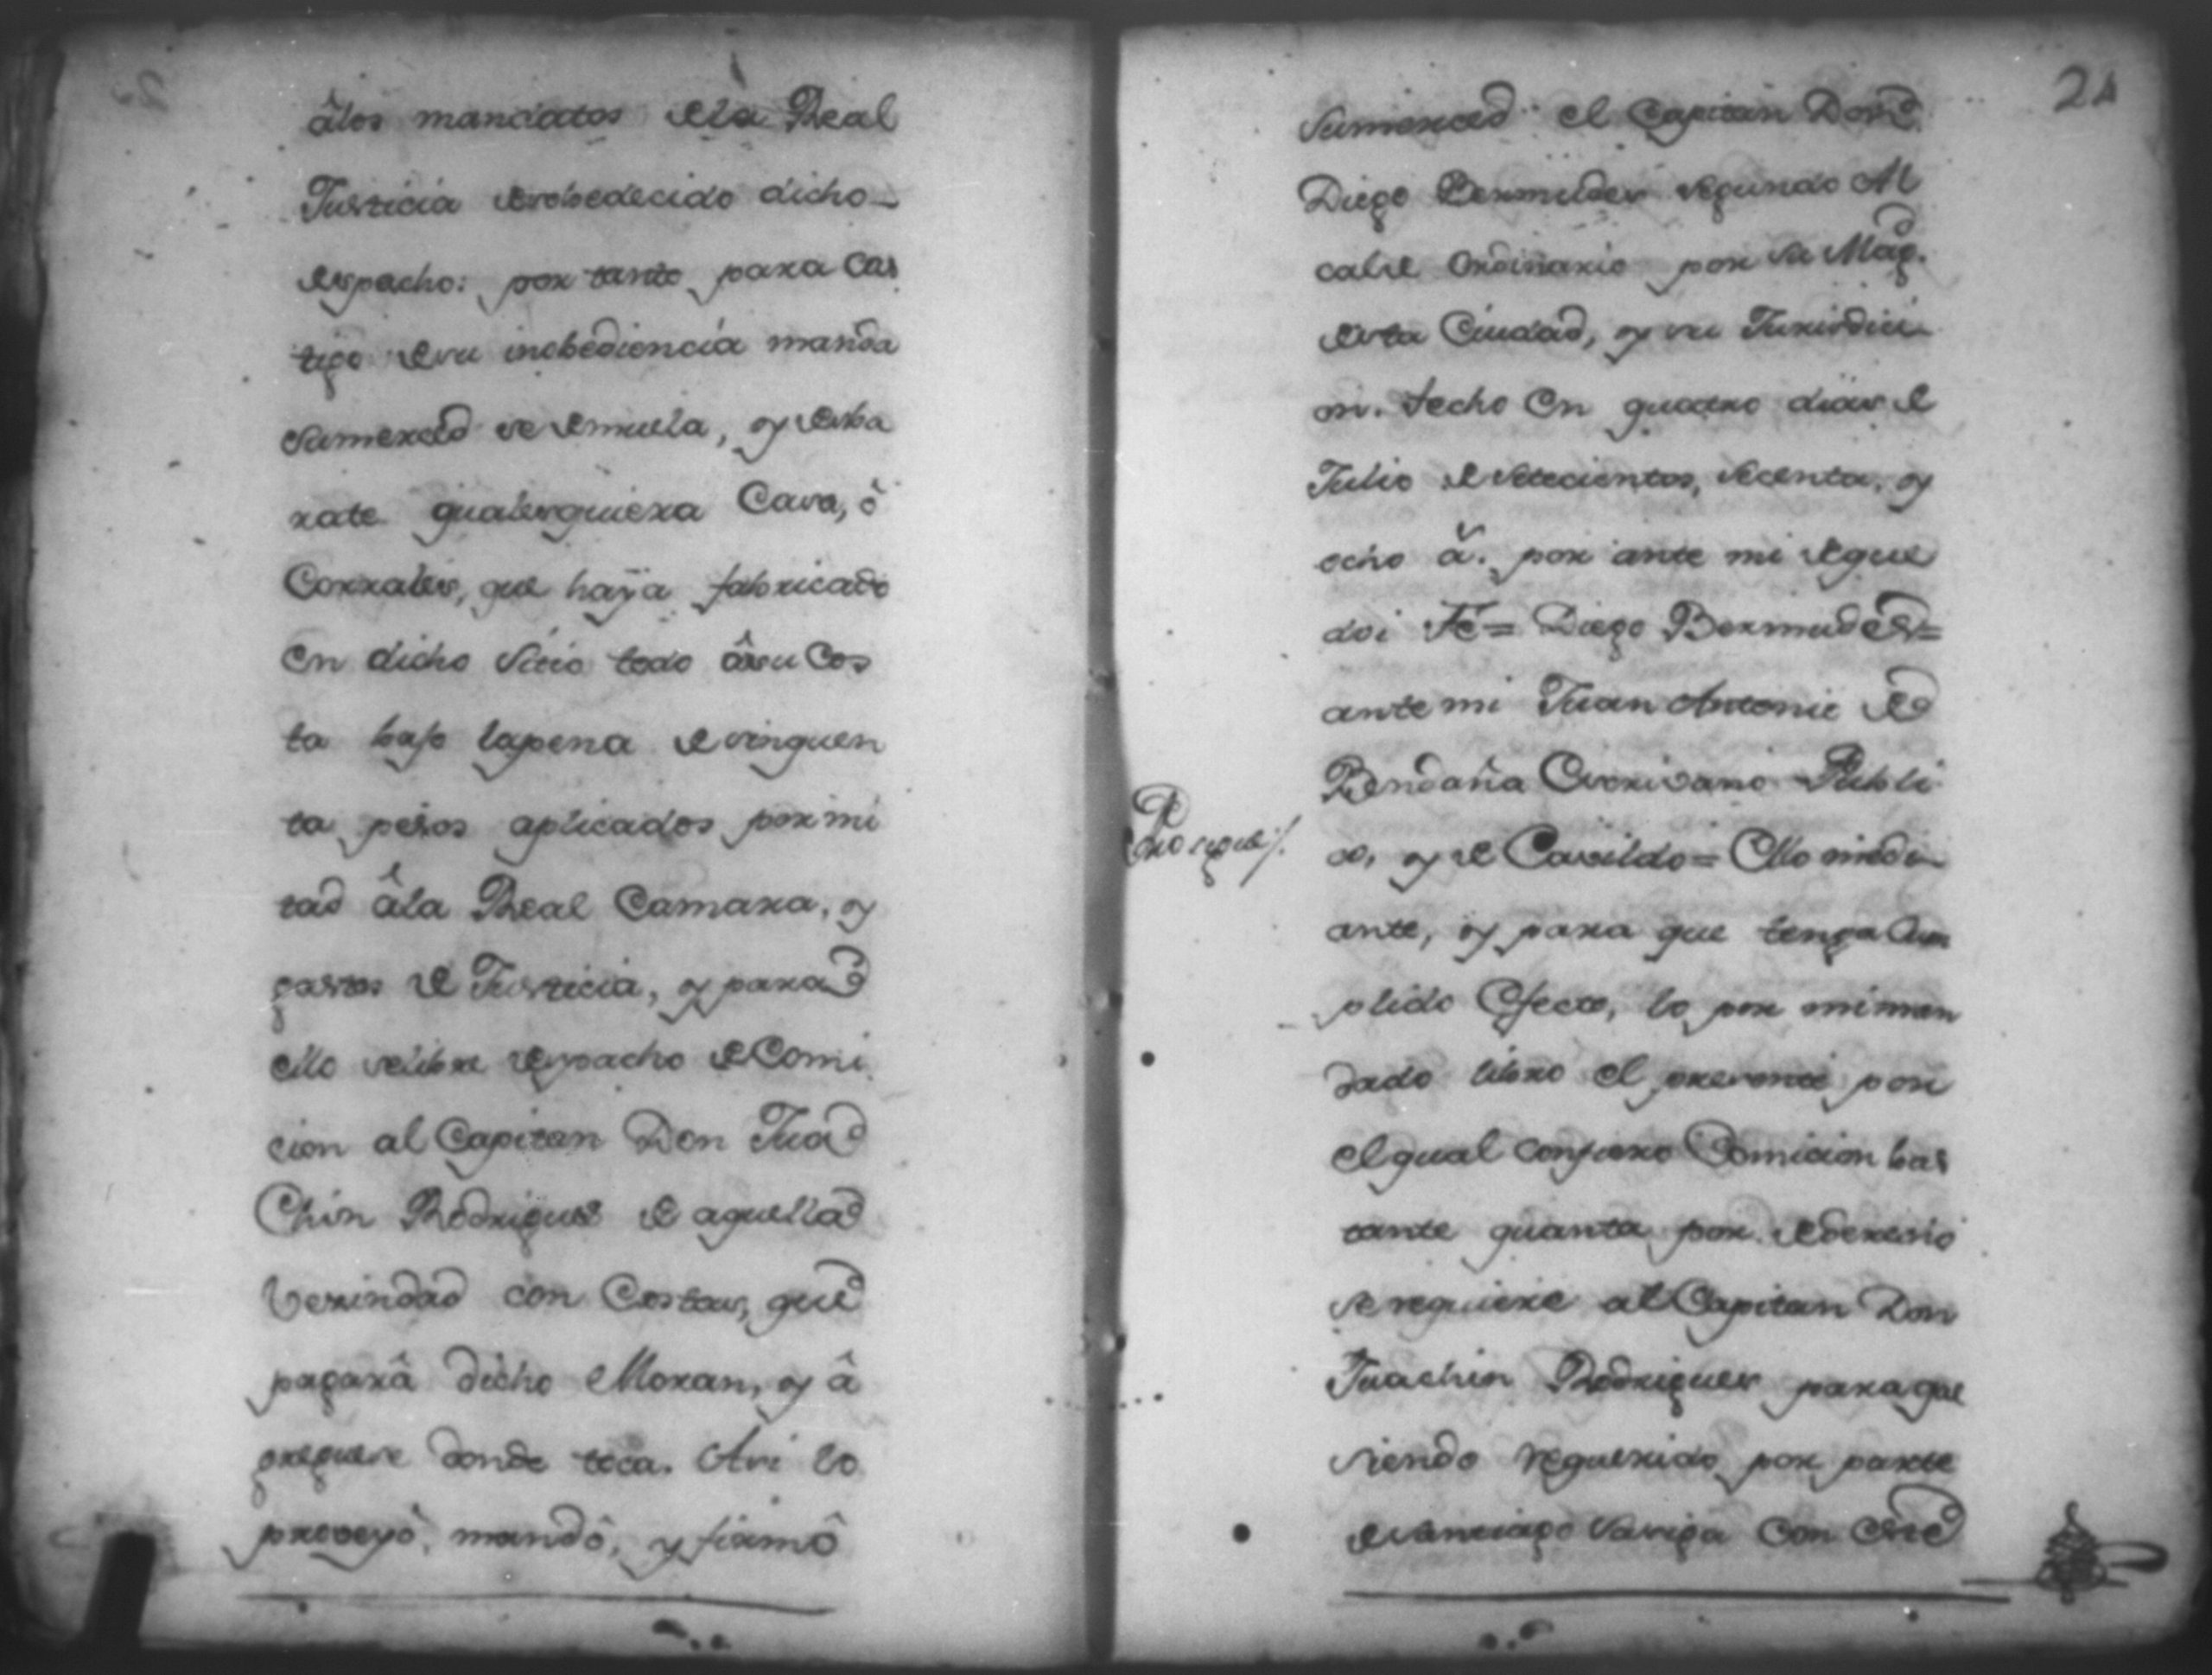 âlos mandatos dela Real
Justicia desobedecido dicho
despacho: por tanto para Cas
tigo desu inobediencia manda
Sumerced se demuela, y desba
rate qualesquiera Casa, ô
Corrales, que haÿa fabricado
en dicho Sitio todo âsu Cos
ta bajo lapena de sinquen
ta pesos aplicados por mi
tad âla Real Camara, y
gastos de Justicia, y para
ello selibre despacho de Comi
cion al Capitan Don Jua
Chin Rodrigues de aquella
Vesindad con Costas, que
pagarâ dicho Moran, y â
greguese donde toca. Asi lo
proveyò, mandô, y firmô
21
Sumerced el Capitan Don
Diego Bermudes segundo Al
calde Ordinario por Su Magd.
desta Ciudad, y su Jurisdici
on. fecho en quatro dias de
Julio de Setecientos, Secenta, y
ocho ã. por ante mi deque
doi Fé = Diego Bermudes =
ante mi Juan Antonio de
Bendaña Escrivano Publi
co, y de Cavildo = Mo
Prosigue/.
ante, y para que tenga Cum
plido Efecto, lo por mi man
dado libro el presente por
el qual confiero Comicion bas
tante quanta por dederecho
serequiere al Capitan Don
Juachin Rodrigues paraque
siendo requerido por parte
deSantiago Sariga con este